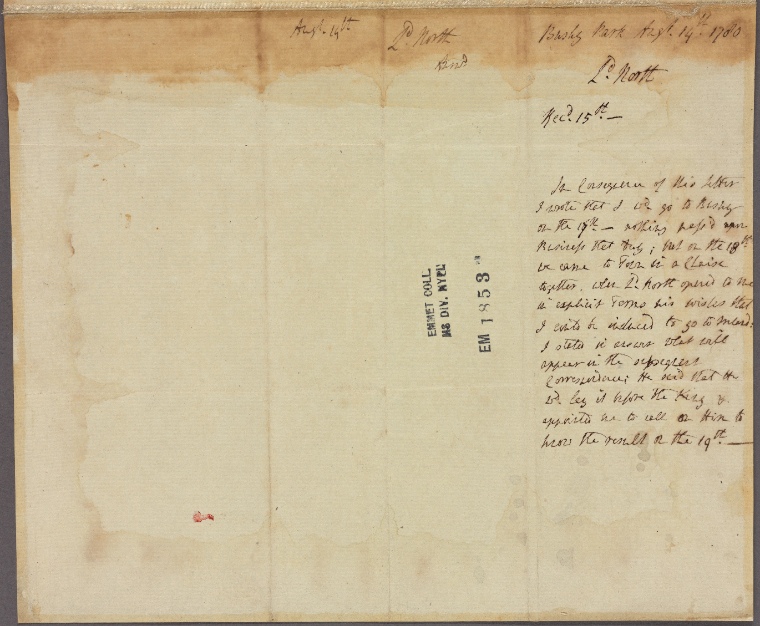 Augt. 14th
Ld. North
Bushy Park Augt. 14th. 1780
Ld. North
Recd. 15th.—
In Consequence of this Letter
I wrote that I wd. go to Bushy
on the 17th.— nothing pass'd upon
Business that day; but on the 18th
we came to Town in a Chaise
together. when Ld. North opened to me
in explicit Terms his wishes that
I could be induced to go to
I stated in answer what will
appear in the subsequent
Correspondence; He said that He
wd. lay it before the King &
appointed me to call on Him to
know the result on the 19th.—
EMMET COLL.
MS DIV. NYPL
EM 1853